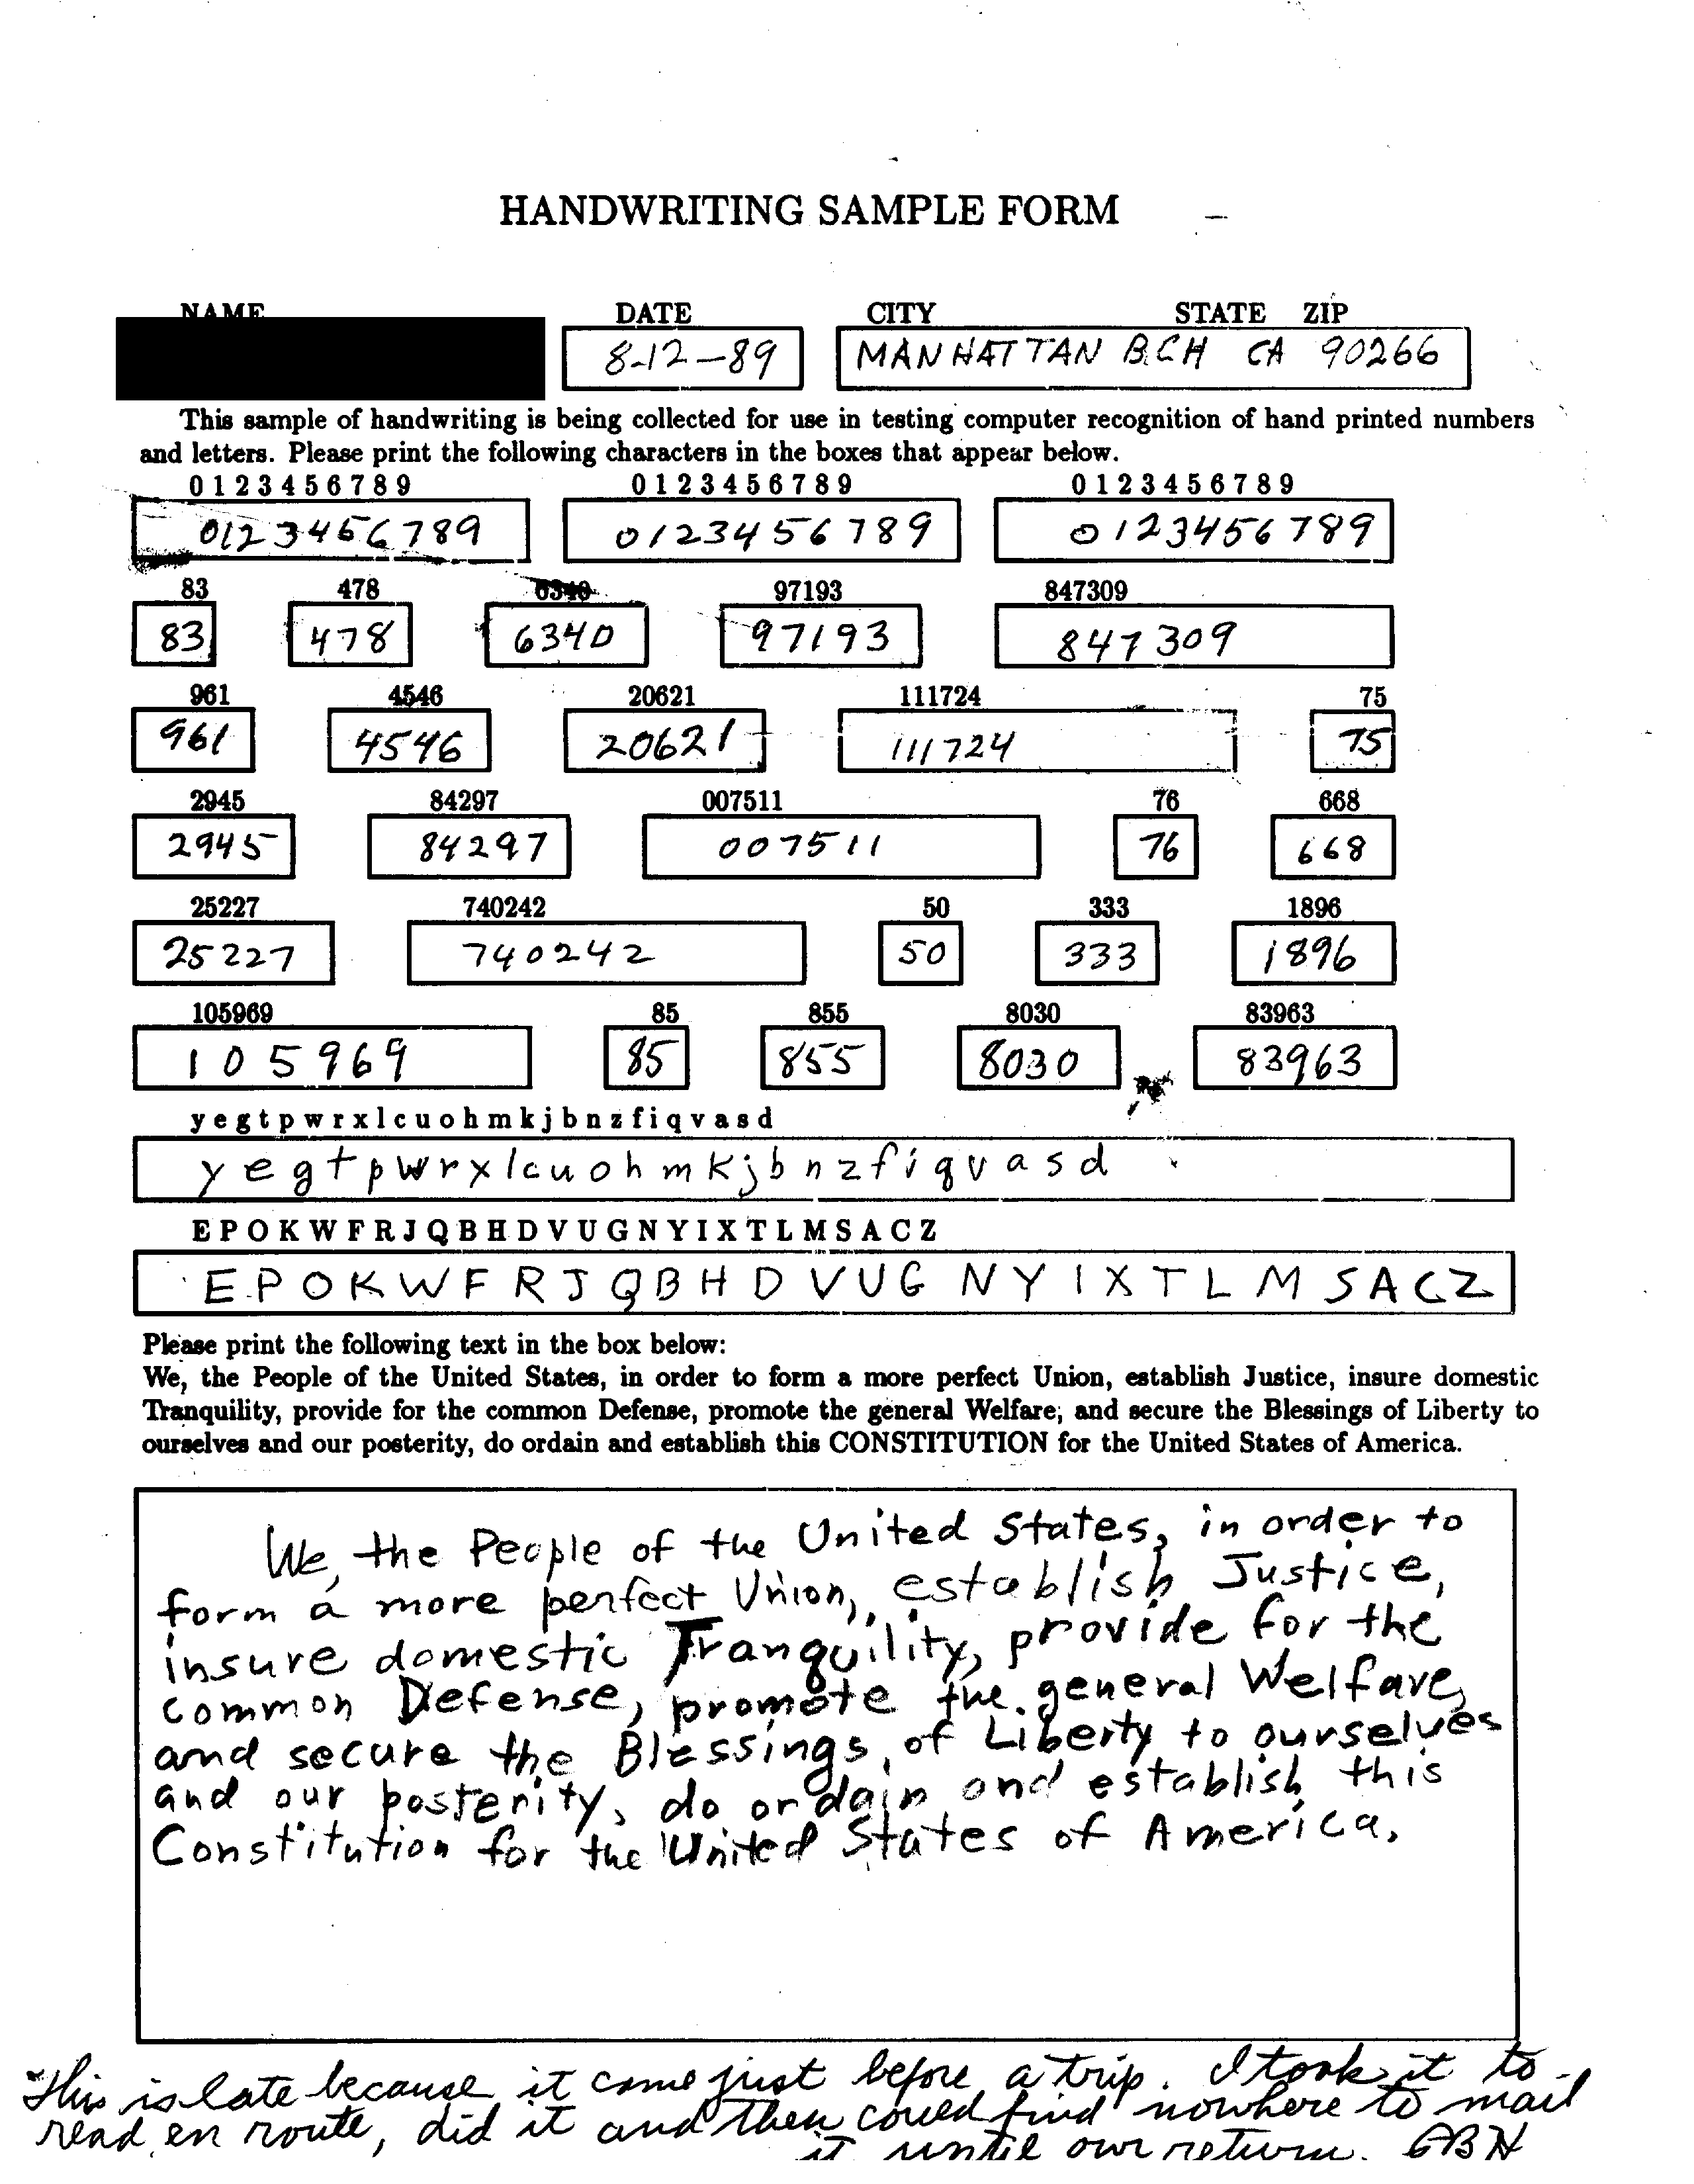 HANDWRITING SAMPLE FORM
NAME DATE CITY STATE ZIP
8-12-89 MANHATTAN BCH CA 90266
This sample of handwriting is being collected for use in testing computer recognition of hand printed numbers
and letters. Please print the following characters in the boxes that appear below.
0 1 2 3 4 5 6 7 8 9 0 1 2 3 4 5 6 7 8 9 0 1 2 3 4 5 6 7 8 9
0123456789 0123456789 0123456789
83 478 6340 97193 847309
83 478 6340 97193 847309
961 4546 20621 111724 75
961 4546 20621 111724 75
2945 84297 007511 76 668
2945 84297 007511 76 668
25227 740242 50 333 1896
25227 740242 50 333 1896
105969 85 855 8030 83963
105969 85 855 8030 83963
y e g t p w r x l c u o h m k j b n z f i q v a s d
y e g t p w r x l c u o h m k j b n z f i q v a s d
E P O K W F R J Q B H D V U G N Y I X T L M S A C Z
E P O K W F R J Q B H D V U G N Y I X T L M S A C Z
Please print the following text in the box below:
We, the People of the United States, in order to form a more perfect Union, establish Justice, insure domestic
Tranquility, provide for the common Defense, promote the general Welfare, and secure the Blessings of Liberty to
ourselves and our posterity, do ordain and establish this CONSTITUTION for the United States of America.
We, the People of the United States, in order to
form a more perfect Union, establish Justice,
insure domestic Tranquility, provide for the
common Defense, promote the general Welfare,
and secure the Blessings of Liberty to ourselves
and our posterity, do ordain and establish this
Constitution for the United States of America.
This is late because it came just before a trip. I took it to
read en route, did it and then could find nowhere to mail
it until our return. GBH